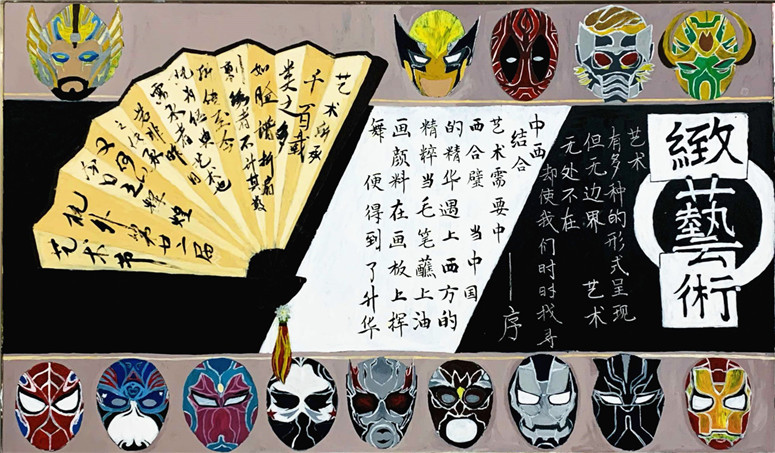 緻藝術
艺术
有多种的形式呈现
但无边界 艺术
无处不在
却使我们时时找寻
——序
中西
结合
艺术需要中
西合璧 当中国
的精华遇上西方的
精粹当毛笔蘸上油
画颜料在画板上挥
舞 便得到了升华
艺术
千百载
类之多
如脸谱折扇
者不计其数
又何
第廿二届
艺术节